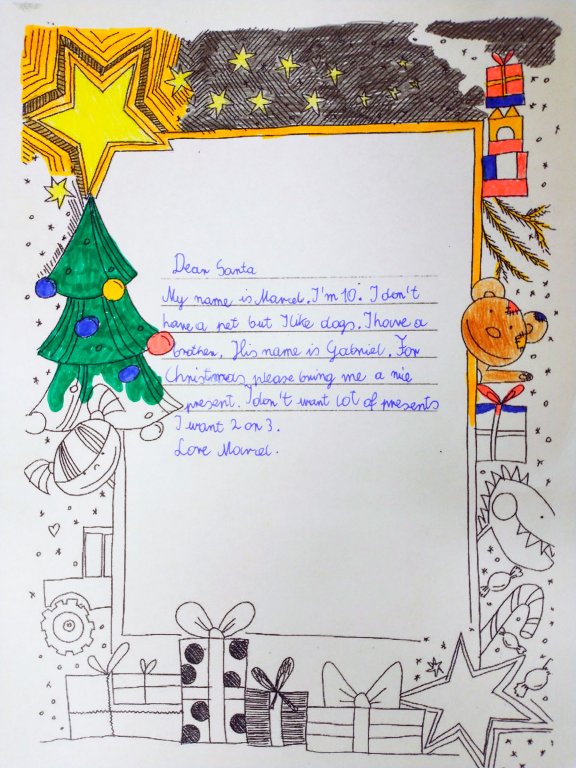 Dear Santa
My name is Marcel. I'm 10. I don't
have a pet but I like dogs. I have a
brother. His name is Gabriel. For
Christmas, please bring me a nice
present. I don't want lot of presents
I want 2 or 3.
Love Marcel.